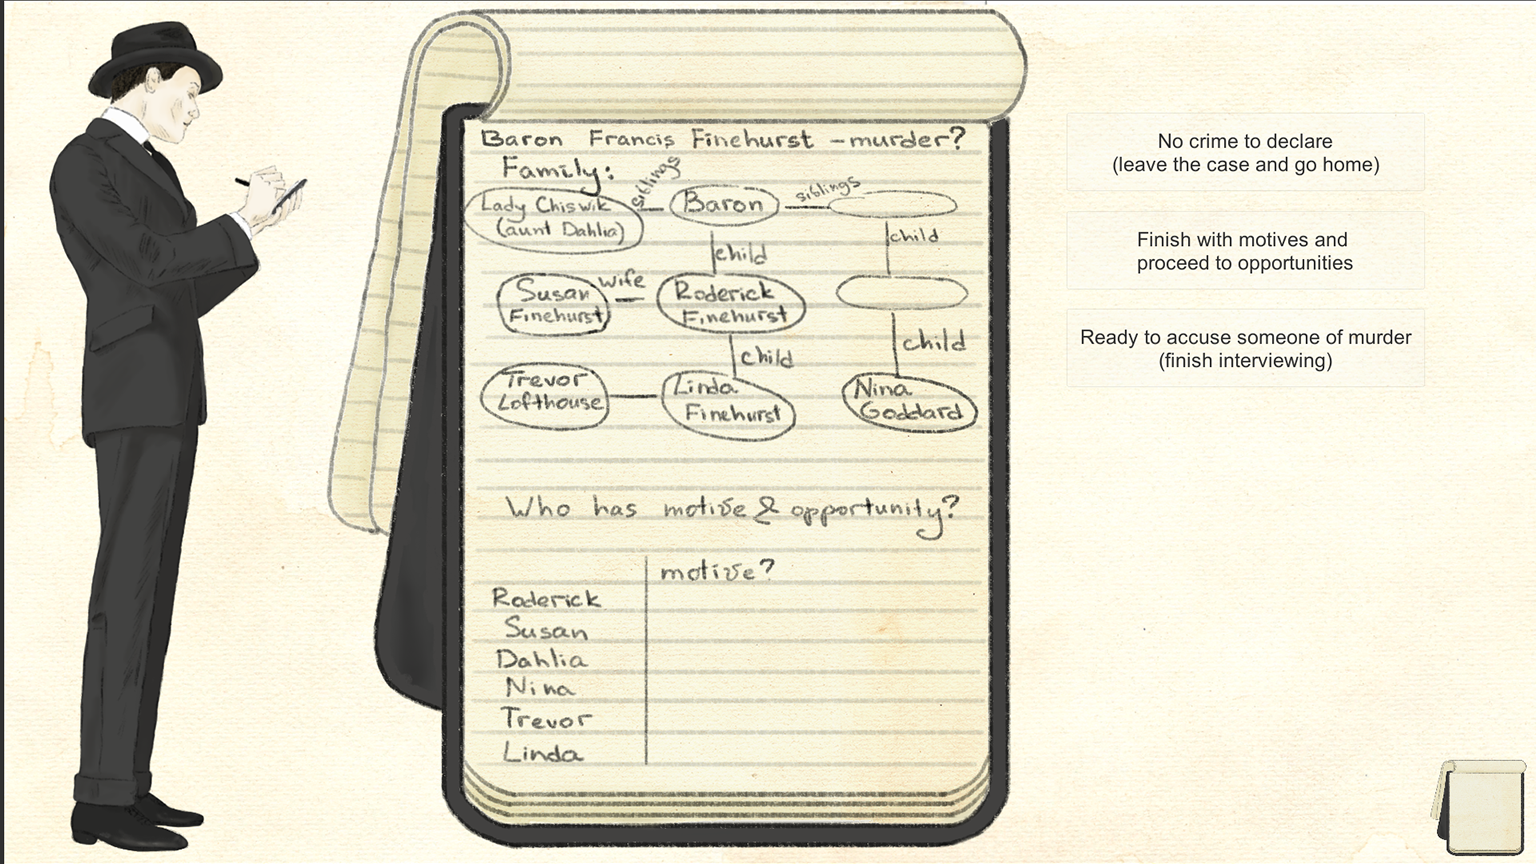 Baron Francis Finehurst - murder?
Family:
siblings
siblings
Lady Chiswik
(aunt Dahlia)
Baron
child
child
Susan
Finehurst
wife
Roderick
Finehurst
child
child
Trevor
Lofthouse
Linda
Finehurst
Nina
Goddard
Who has motive & opportunity?
motive?
Roderick
Susan
Dahlia
Nina
Trevor
Linda
No crime to declare
(leave the case and go home)
Finish with motives and
proceed to opportunities
Ready to accuse someone of murder
(finish interviewing)